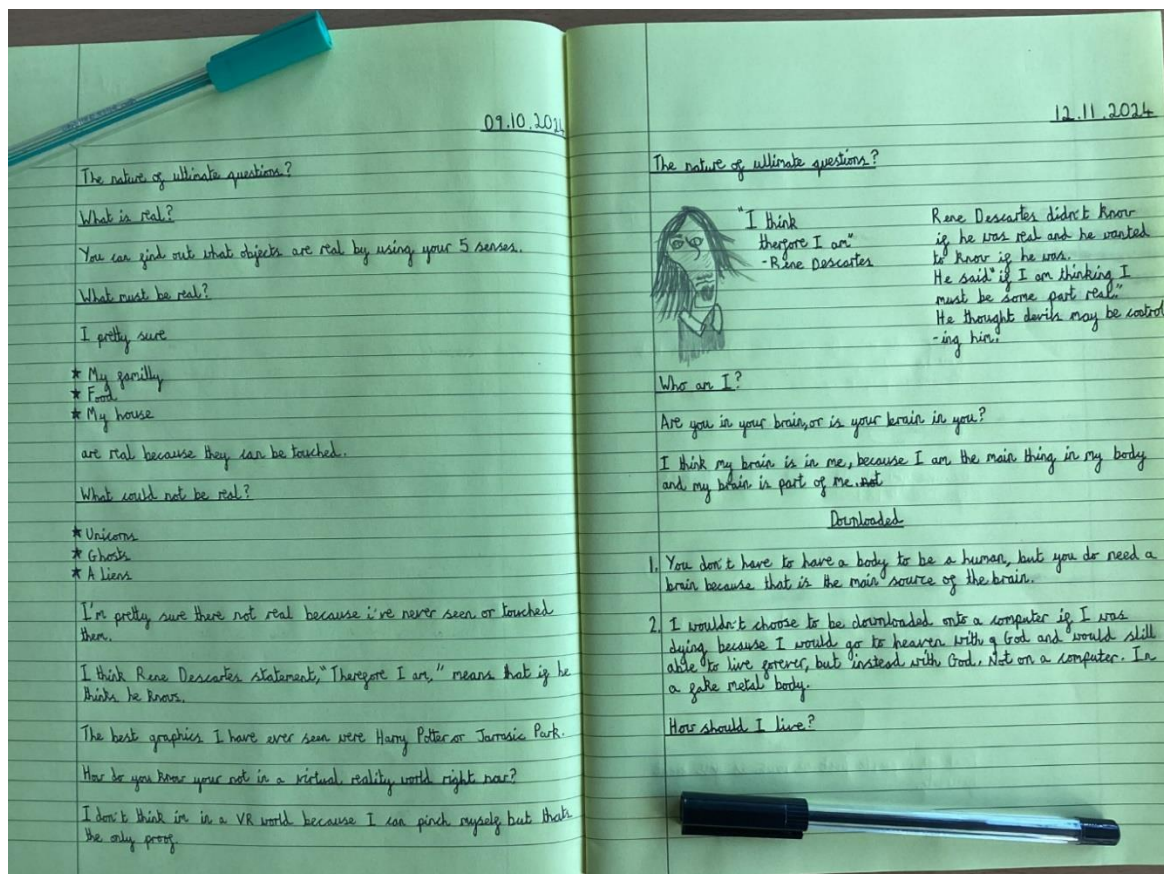 09.10.2024
The nature of ultimate questions?
What is real?
You can find out what objects are real by using your 5 senses.
What must be real?
I pretty sure
★ My familly
★ Food
★ My house
are real because they can be touched.
What could not be real?
★ Unicorns
★ Ghosts
★ Aliens
I'm pretty sure there not real because i've never seen or touched
them.
I think Rene Descartes statement, "Therefore I am," means that if he
thinks he knows.
The best graphics I have ever seen were Harry Potter or Jarrasic Park.
How do you know your not in a virtual reality world right now?
I don't think im in a VR world because I can pinch myself but thats
the only proof.
12.11.2024
The nature of ultimate questions?
"I think
therefore I am"
-Rene Descartes
Rene Descartes didn't know
if he was real and he wanted
to know if he was.
He said "if I am thinking I
must be some part real."
He thought devils may be control
-ing him.
Who am I?
Are you in your brain, or is your brain in you?
I think my brain is in me, because I am the main thing in my body
and my brain is part of me. not
Downloaded
1. You don't have to have a body to be a human, but you do need a
brain because that is the main source of the brain.
2. I wouldn't choose to be downloaded onto a computer if I was
dying because I would go to heaven with God and would still
able to live forever, but instead with God. Not on a computer. In
a fake metal body.
How should I live?